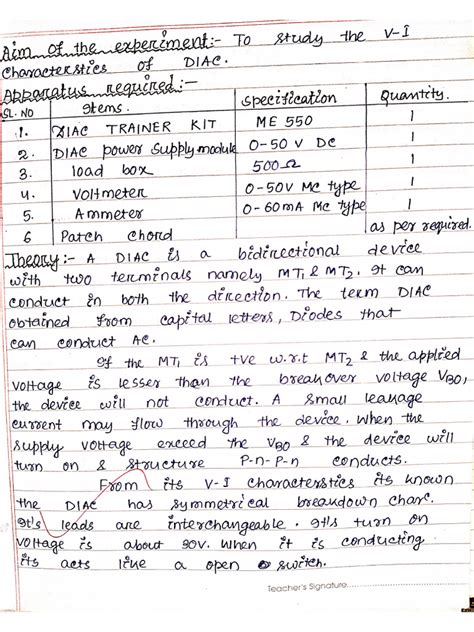 Aim of the experiment:- To study the V-I
characterstics of DIAC.
Apparatus required:-
SL. NO Items. Specification Quantity.
1. DIAC TRAINER KIT ME 550 1
2. DIAC power supply module 0-50 V DC 1
3. load box 500Ω 1
4. Voltmeter 0-50V MC type 1
5. Ammeter 0-60mA MC type 1
6 Patch chord as per required.
Theory:- A DIAC is a bidirectional device
with two terminals namely MT1 & MT2. It can
conduct in both the direction. The term DIAC
obtained from capital letters, Diodes that
can conduct AC.
If the MT1 is +ve w.r.t MT2 & the applied
voltage is lesser than the breakover voltage VBO,
the device will not conduct. A small leakage
current may flow through the device. When the
supply voltage exceed the VBO & the device will
turn on & structure P-n-P-n conducts.
From its V-I characterstics its known
the DIAC has symmetrical breakdown char.
It's leads are interchangeable. It's turn on
voltage is about 30V. When it is conducting
its acts like a open switch.
Teacher's Signature